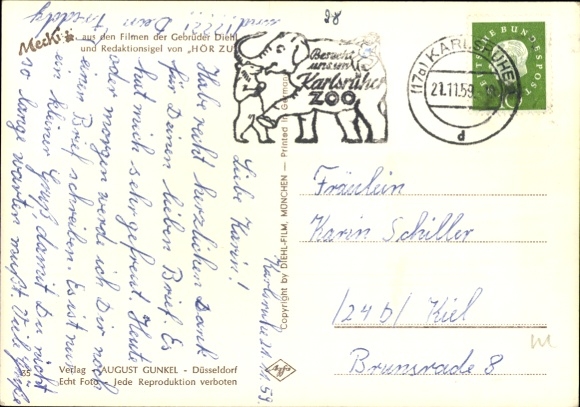 28
Mecki aus den Filmen der Gebrüder Diehl
und Redaktionsigel von „HÖR ZU"
Besucht
uns im
Karlsruher
ZOO
(17a) KARLSRUHE
21.11.59
d
DEUTSCHE BUNDESPOST
Karlsruhe 21.11.59.
Liebe Karin!
Habe recht herzlichen Dank
für Deinen lieben Brief. Es
hat mich sehr gefreut. Heute
oder morgen werde ich Dir noch
einen Brief schreiben. Es ist nur
ein kleiner Gruß, damit Du nicht
so lange warten mußt. Viele Grüße
und !!!!! Dein Freddy
Copyright by DIEHL-FILM, MÜNCHEN — Printed in Germany
Fräulein
Karin Schiller
/24b/ Kiel
Brunsrade 8
Verlag AUGUST GUNKEL - Düsseldorf
Echt Foto - Jede Reproduktion verboten
Agfa